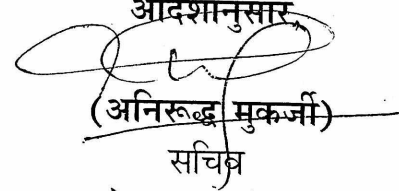 आदेशानुसार,
(अनिरूद्ध मुकर्जी)
सचिव